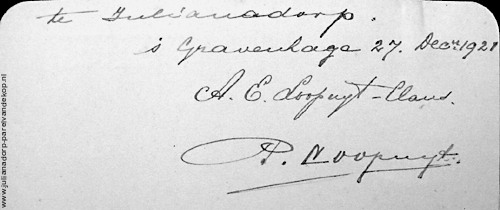 te Julianadorp.
s Gravenhage 27. Dec. 1921
A. E. Loopuyt-Claus.
P. Loopuyt.
www.julianadorp-parelvandekop.nl